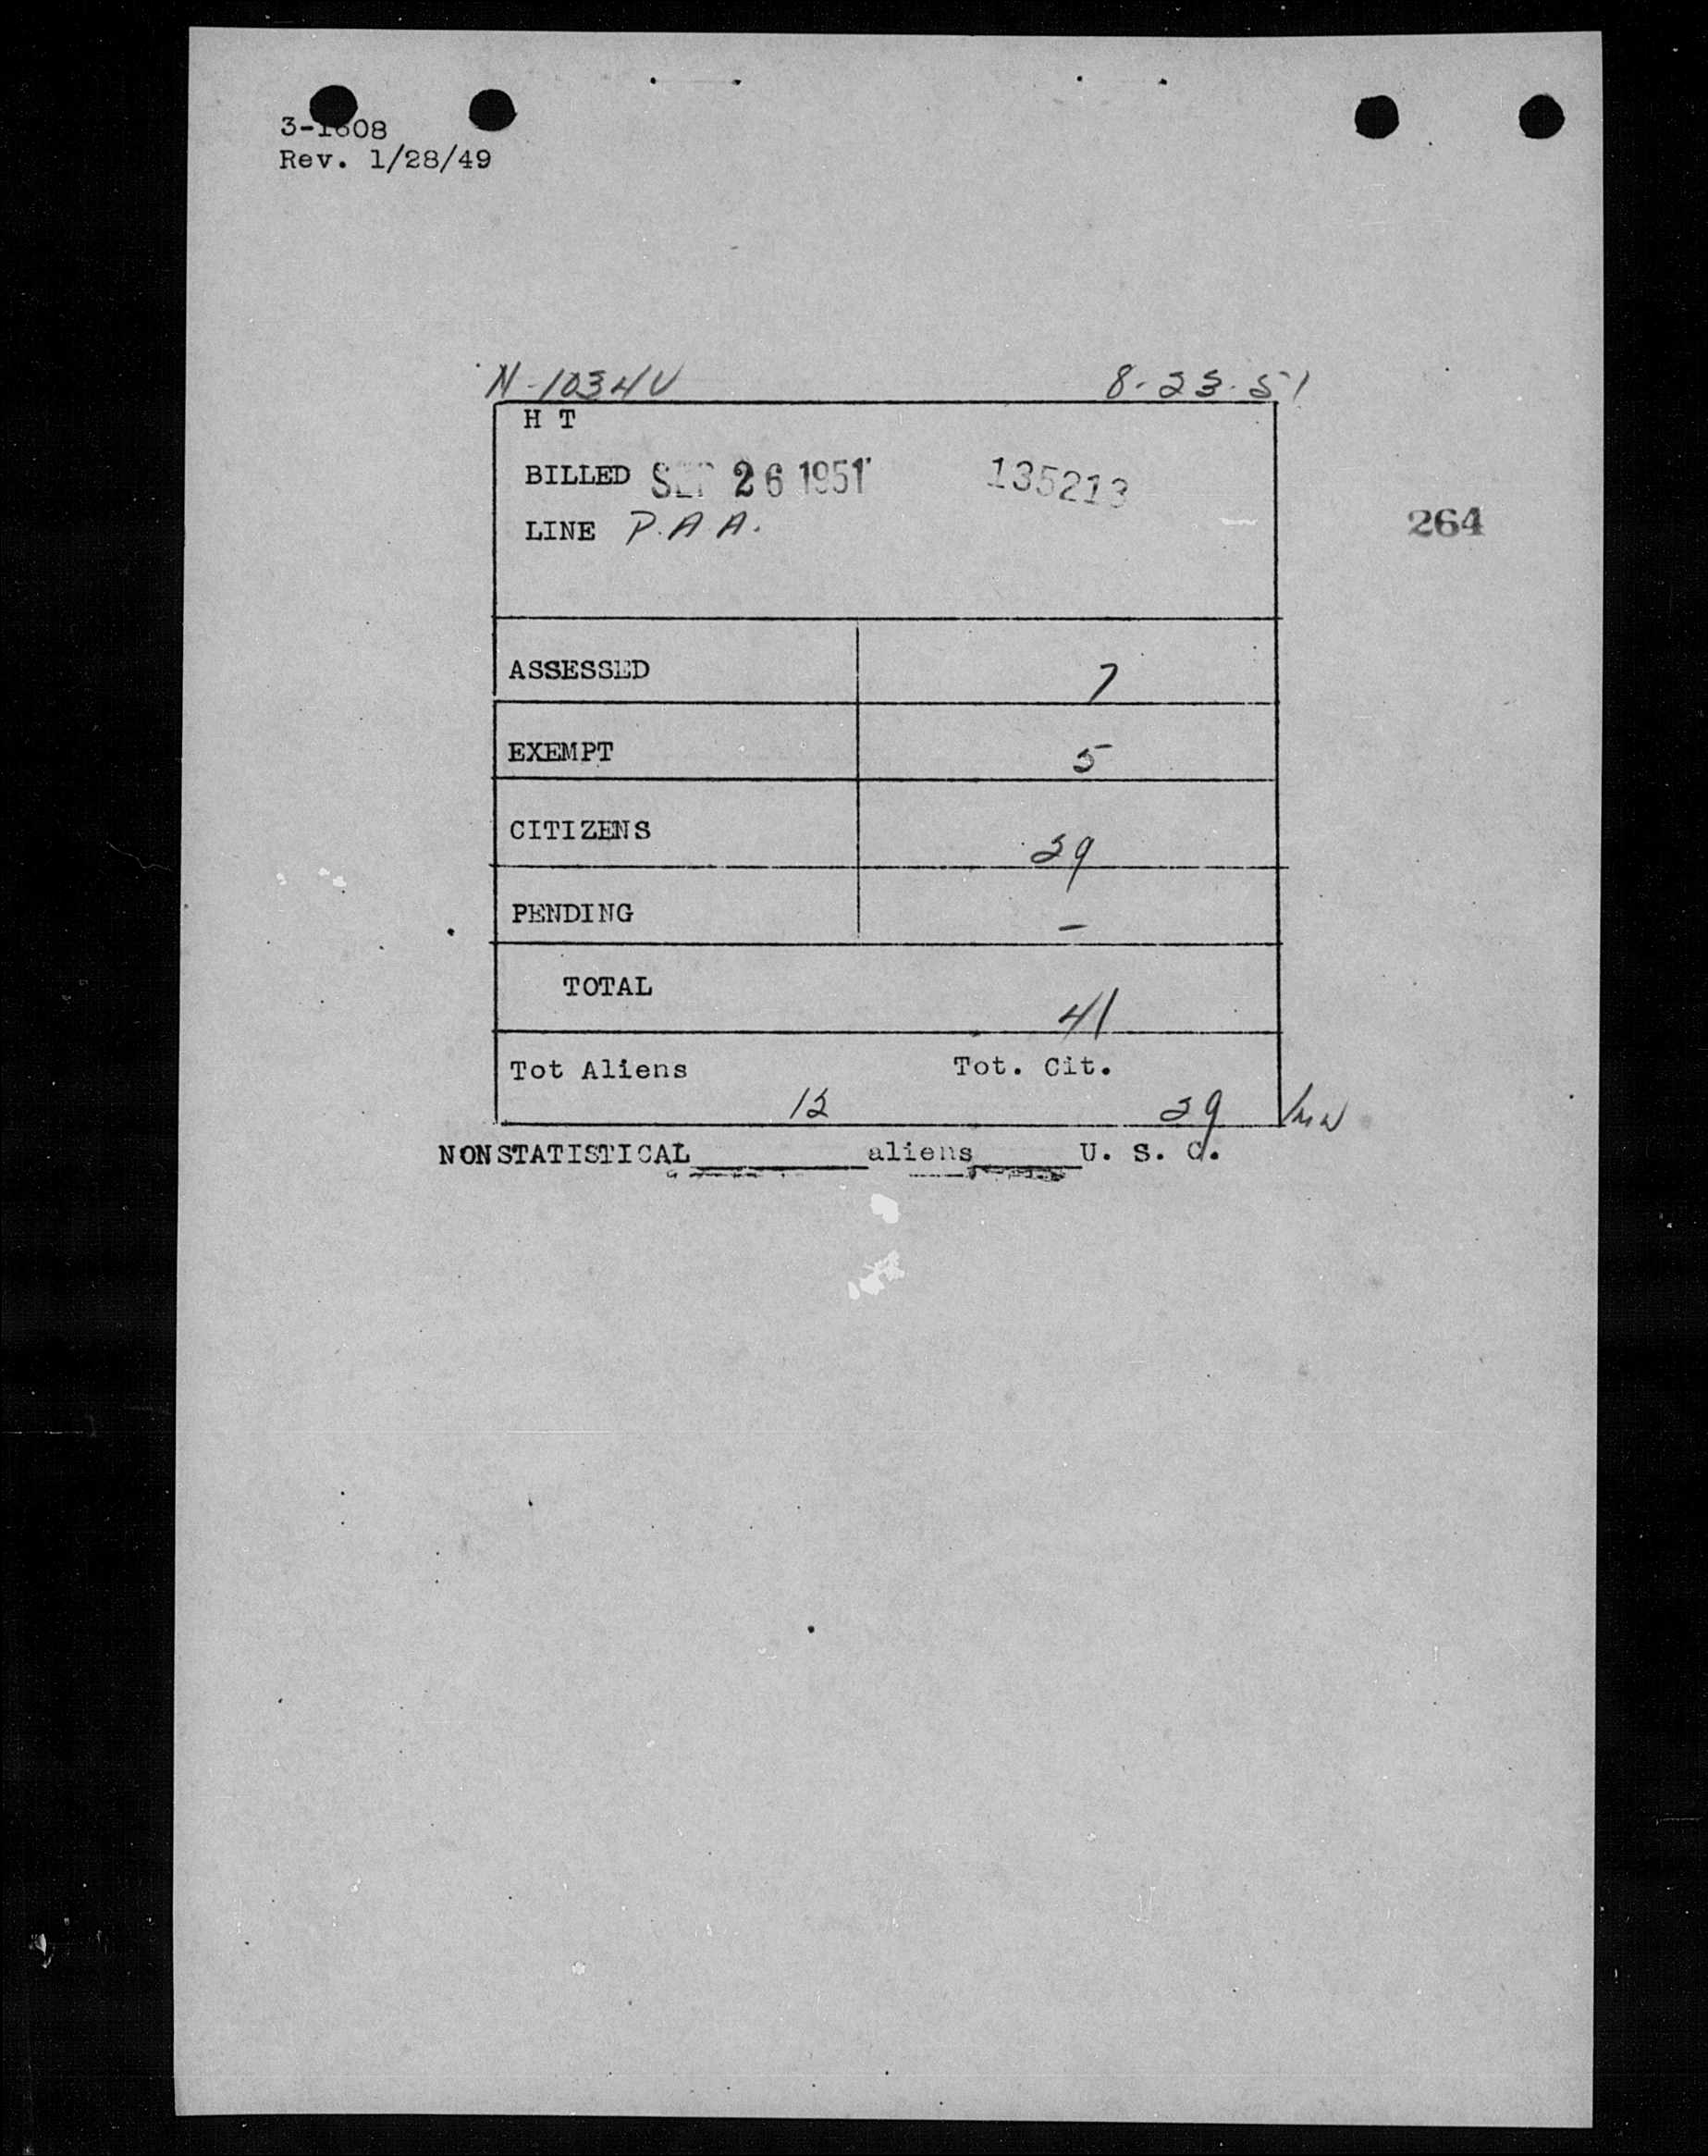 3-1608
Rev. 1/28/49
N-1034V 8-23-51
H T
BILLED SEP 26 1951 135213
LINE P.A.A.
264
ASSESSED 7
EXEMPT 5
CITIZENS 29
PENDING –
TOTAL 41
Tot Aliens Tot. Cit.
12 29
NONSTATISTICAL________aliens_____U. S. C.